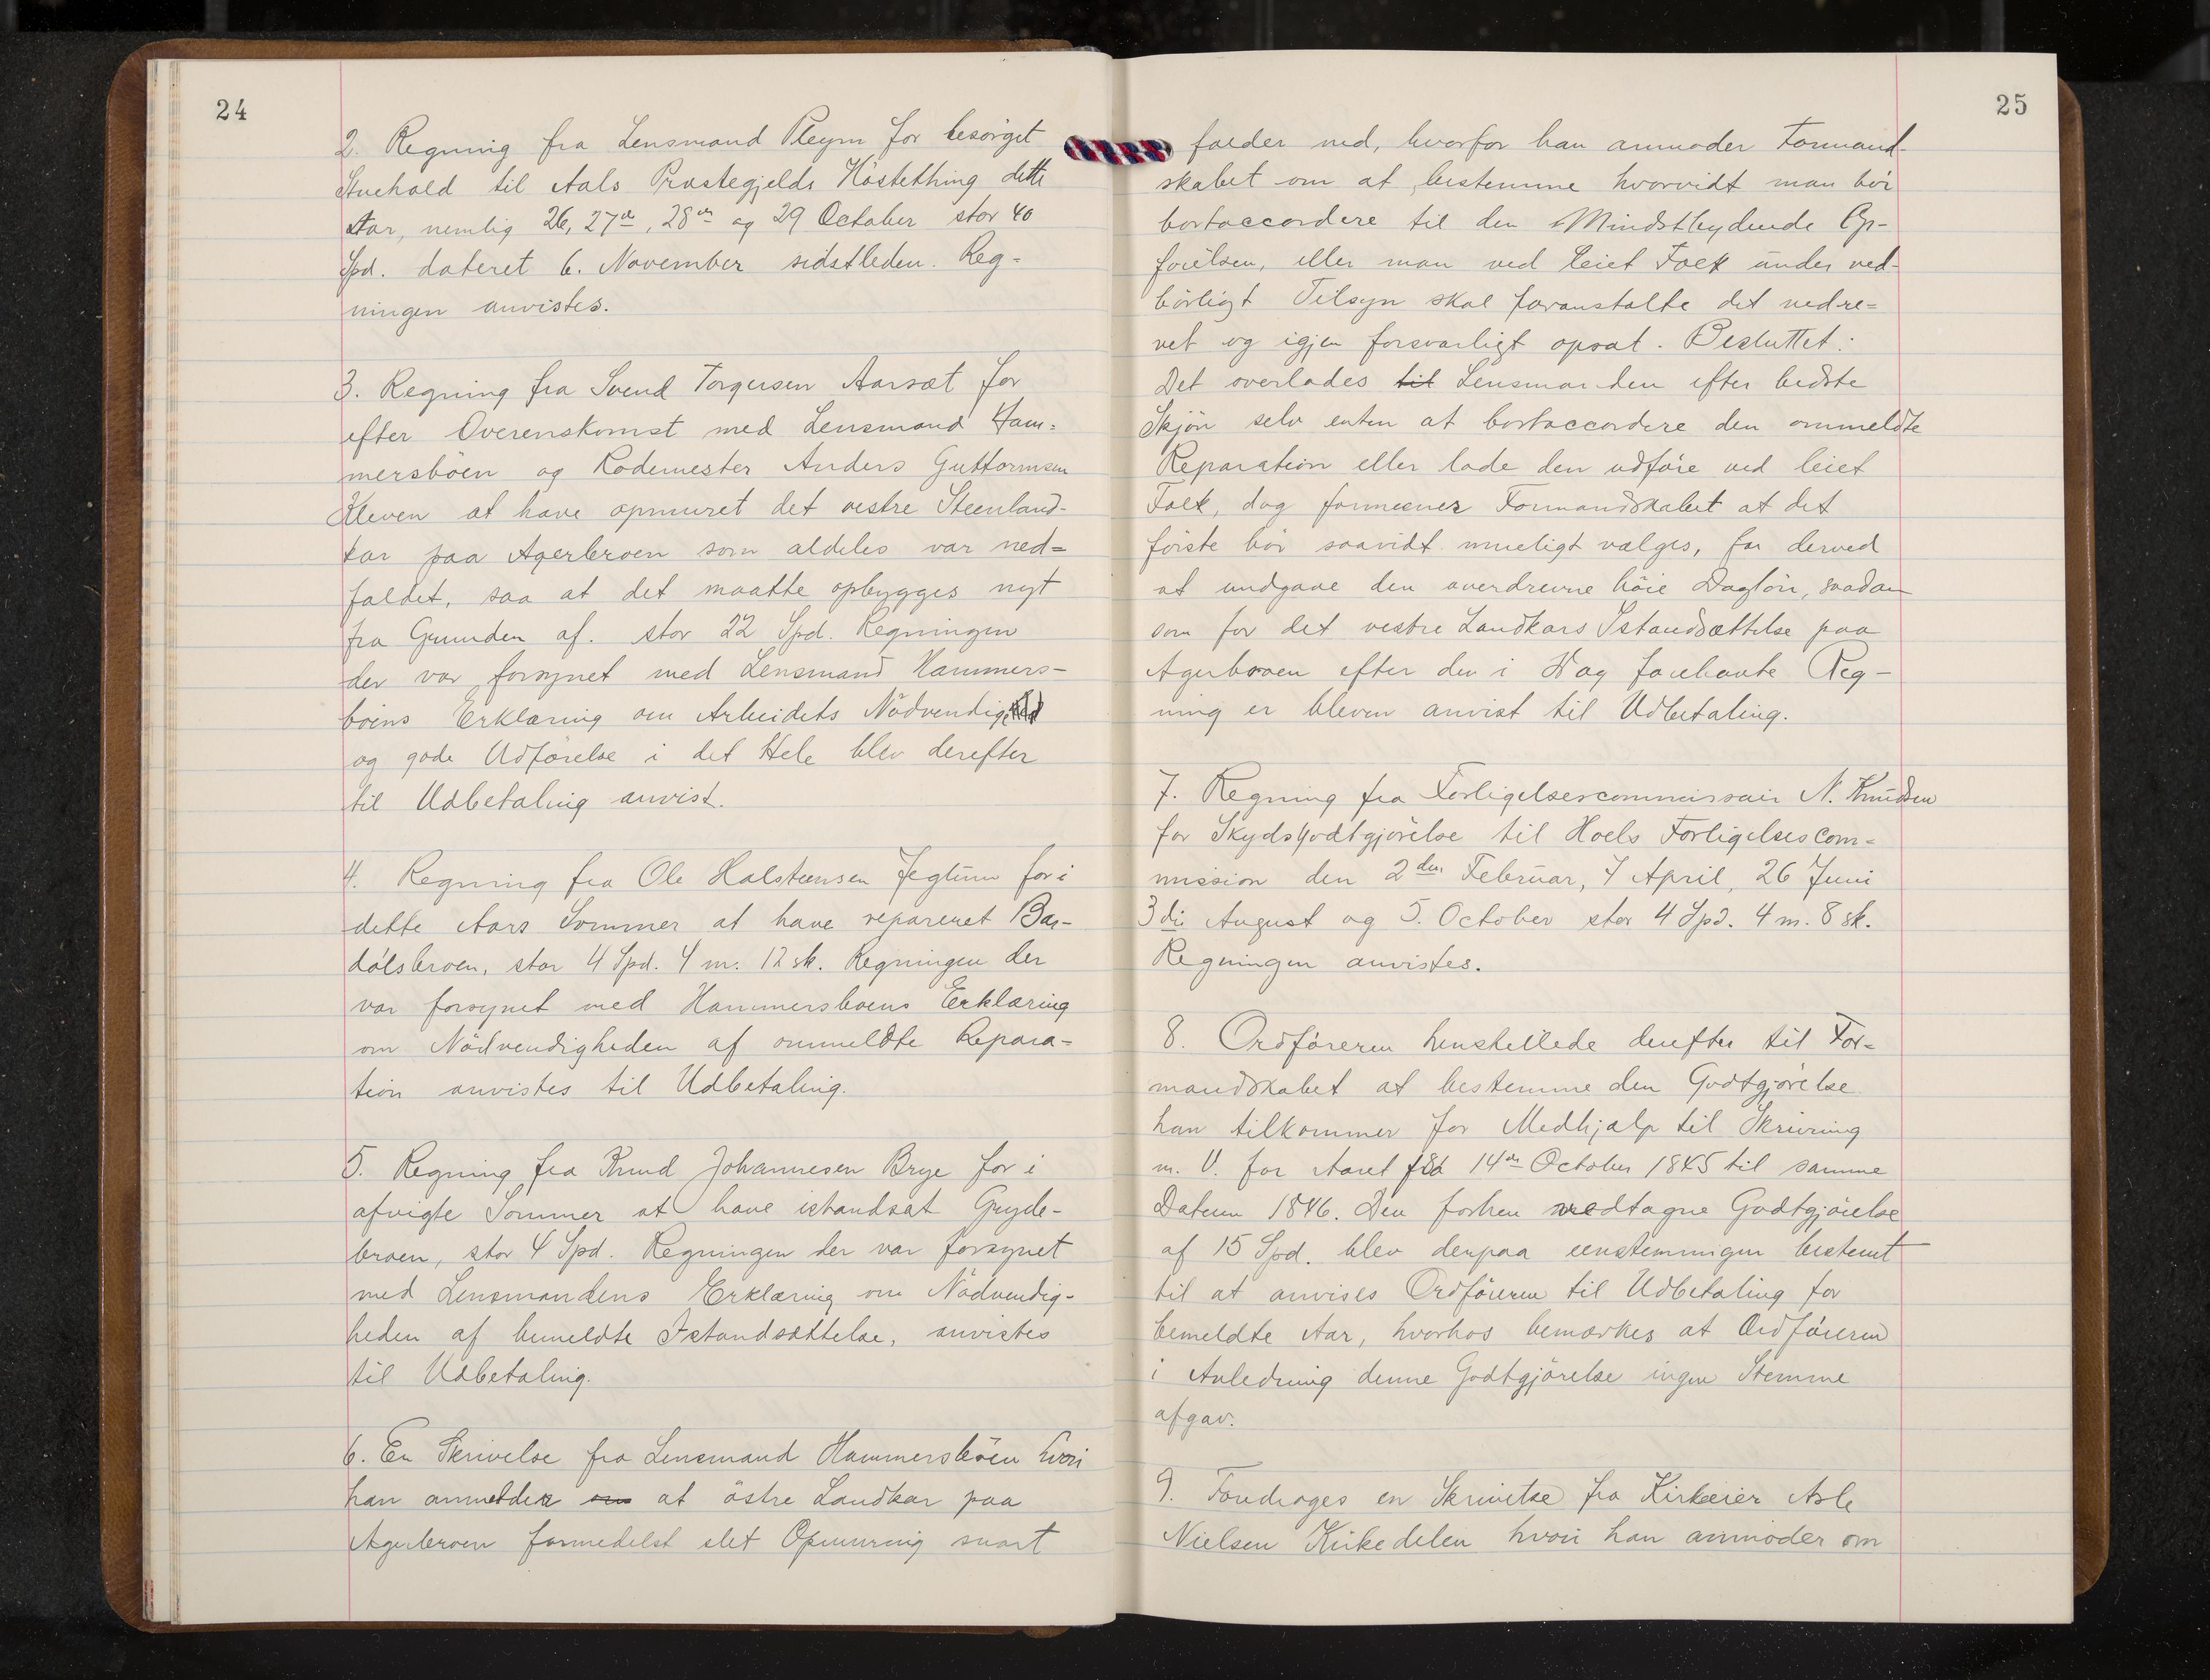 24
2. Regning fra Lensmand Pleym for besörget
Stuehold til Aals Præstegjelds Hösttething dette
Aar, nemlig 26, 27de, 28de og 29 October stor 40
Spd. dateret 6. November sidstleden. Reg-
ningen anvistes.
3. Regning fra Svend Torgersen Aarsæt for
efter Overenskomst med Lensmand Ham-
mersböen og Rodemester Anders Guttormsen
Kleven at have opmuret det vestre Steenland-
kar paa Agerbroen som aldeles var ned-
faldet, saa at det maatte opbygges nyt
fra Grunden af. stor 22 Spd. Regningen
der var forsynet med Lensmand Hammers-
böens Erklæring om Arbeidets Nödvendighed
og gode Udförelse i det Hele blev derefter
til Udbetaling anvist.
4. Regning fra Ole Halsteensen Jegtun for i
dette Aars Sommer at have repareret Bar-
dölsbroen, stor 4 Spd. 4 m. 12 sk. Regningen der
var forsynet med Hammersboens Erklæring
om Nödvendigheden af ommeldte Repara-
tion anvistes til Udbetaling.
5. Regning fra Knud Johannesen Brye for i
afvigte Sommer at have istandsat Gryde-
broen, stor 4 Spd. Regningen der var forsynet
med Lensmandens Erklæring om Nödvendig-
heden af bemeldte Istandsættelse, anvistes
til Udbetaling.
6. En Skrivelse fra Lensmand Hammersböen hvori
han anmelder om at östre Landkar paa
Agerbroen formedelst slet Opmuring snart
25
falder ned, hvorfor han anmoder Formand-
skabet om at bestemme hvorvidt man bör
bortaccordere til den Mindstbydende Op-
förelsen, eller man ved leiet Folk under ved-
börligt Tilsyn skal foranstalte det nedre-
vet og igjen forsvarligt opsat. Besluttet:
Det overlades til Lensmanden efter bedste
Skjön selv enten at bortaccordere den ommeldte
Reparation eller lade den udföre ved leiet
Folk, dog formeener Formandskabet at det
förste bör saavidt mueligt vælges, for derved
at undgaae den overdrevne höie Daglön, saadan
som for det vestre Landkars Istandsættelse paa
Agerbroen efter den i Dag forehavte Reg-
ning er bleven anvist til Udbetaling.
7. Regning fra Forligelsescommissair N. Knudsen
for Skydsgodtgjörelse til Hoels Forligelsescom-
mission den 2den Februar, 7 April, 26 Juni
3die August og 5. October stor 4 Spd. 4 m. 8 sk.
Regningen anvistes.
8. Ordföreren henstillede derefter til For-
mandskabet at bestemme den Godtgjörelse
han tilkommer for Medhjælp til Skrivning
m. V. for Aaret fra 14de October 1845 til samme
Datum 1846. Den forhen vedtagne Godtgjörelse
af 15 Spd. blev derpaa eenstemmigen bestemt
til at anvises Ordföreren til Udbetaling for
bemeldte Aar, hvorhos bemærkes at Ordföreren
i Anledning denne Godtgjörelse ingen Stemme
afgav.
9. Foredroges en Skrivelse fra Kirkeeier Asle
Nielsen Kirkedelen hvori han anmoder om